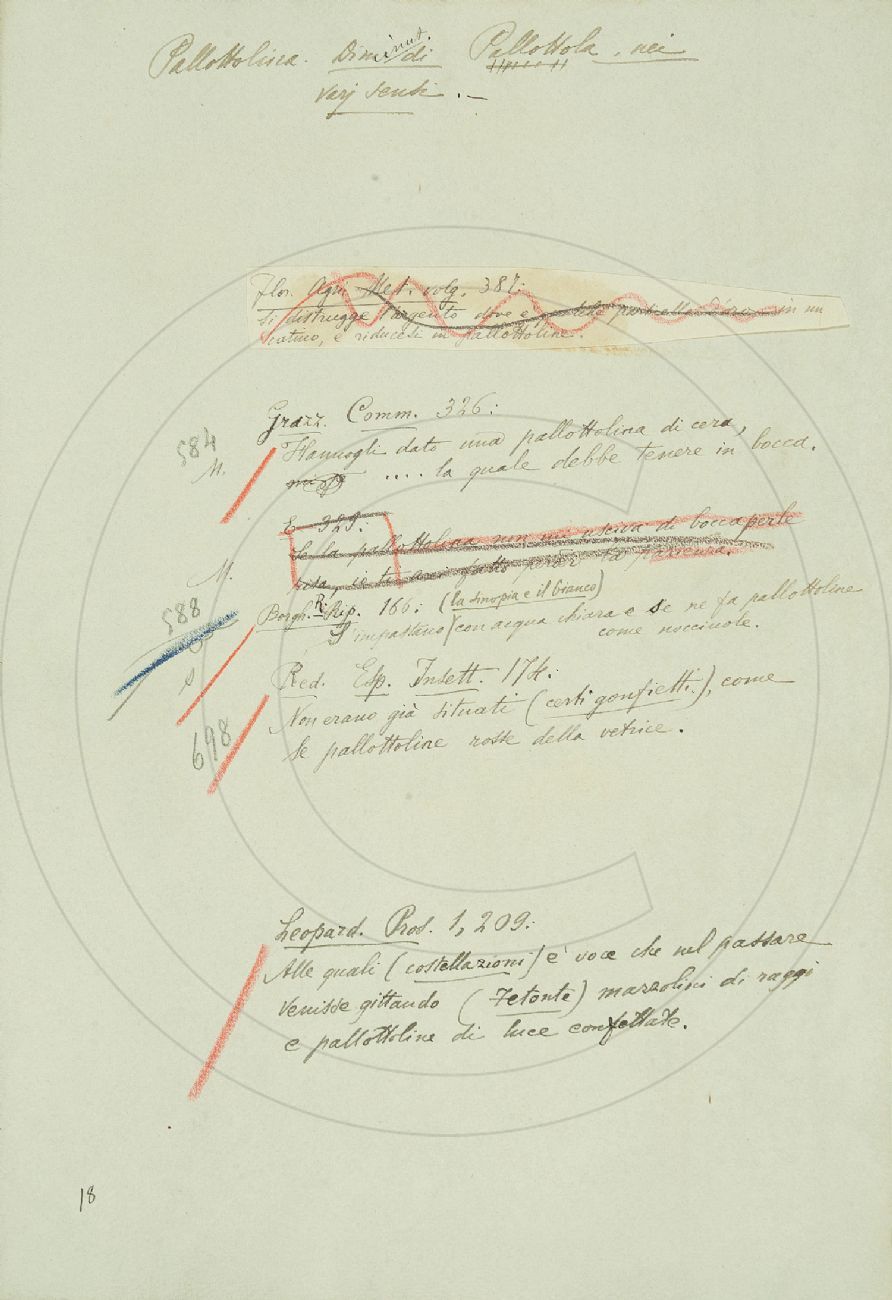 Pallottolina. Diminut. di Pallottola, nei
varj sensi. –
Flor. Agri Met. volg. 387:
Si distrugge l'argento dove è particella d'oro in un
catino, e riducesi in pallottoline.
Grazz. Comm. 326:
584
Hannogli dato una pallottolina di cera,
M.
.... la quale debbe tenere in bocca.
E 329:
Se la pallottolina non mi usciva di bocca per le
M.
risa, io ti avrei fatto
588
Borgh. R. Rip. 166: (la sinopia e il bianco)
S'impastano con acqua chiara e se ne fa pallottoline
come nocciuole.
Red. Esp. Insett. 174:
698
Non erano già situati (certi gonfietti), come
le pallottoline rosse della vetrice.
Leopard. Pros. 1, 209:
Alle quali (costellazioni) è voce che nel passare
venisse gittando (Fetonte) mazzolini di raggi
e pallottoline di luce confettate.
18